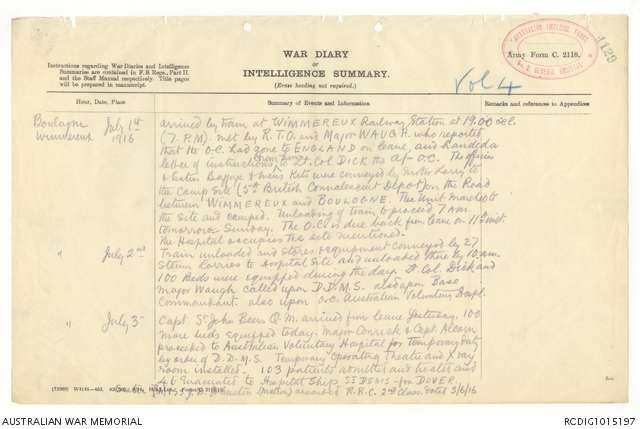 1129
AUSTRALIAN IMPERIAL FORCE
GENERAL HOSPITAL
Army Form C. 2118.
WAR DIARY
or
INTELLIGENCE SUMMARY.
(Erase heading not required.)
Instructions regarding War Diaries and Intelligence
Summaries are contained in F.S. Regs., Part II.
and the Staff Manual respectively. Title pages
will be prepared in manuscript.
Vol 4
Hour, Date, Place
Summary of Events and Information
Remarks and references to Appendices
Boulogne July 1st
Wimmereux 1916
arrived by train at WIMMEREUX Railway Station at 19.00
(7. P.M). met by R.T.O. and Major WAUGH. who reported
that the O.C. had gone to ENGLAND on leave, and handed a
letter of instructions from to Lt. Col DICK the a/- O.C. The officers
& Sisters Baggage & mens Kits were conveyed by motor Lorry to
the Camp Site (5th British Convalescent Depot) on the Road
between WIMMEREUX and BOULOGNE. The Unit marched to
the site and camped. Unloading of train, to proceed 7 AM
tomorrow Sunday. The O.C. is due back from leave on 11th inst
The Hospital occupies the site mentioned.
" July 2nd
Train unloaded and stores & equipment conveyed by 27
Steam Lorries to Hospital Site and unloaded there by 10. am.
100 Beds were equipped during the day. Lt Col. Dick and
Major Waugh called upon D.D.M.S. also upon Base
Commandant. also upon O.C. Australian Voluntary Hospl.
" July 3rd
Capt. St John Beers Q.M. arrived from leave yesterday. 100
more beds equipped today. Major Conrick & Capt Alcorn
proceeded to Australian Voluntary Hospital for Temporary duty
by order of D.D.M.S. Temporary Operating Theatre and X ray
Room installed. 103 patients admitted and treated and
46 Evacuated to Hospital Ships ST DENIS - for DOVER.
(Matron) awarded R.R.C. 2nd Class. dated 3/6/16
AUSTRALIAN WAR MEMORIAL
RCDIG1015197